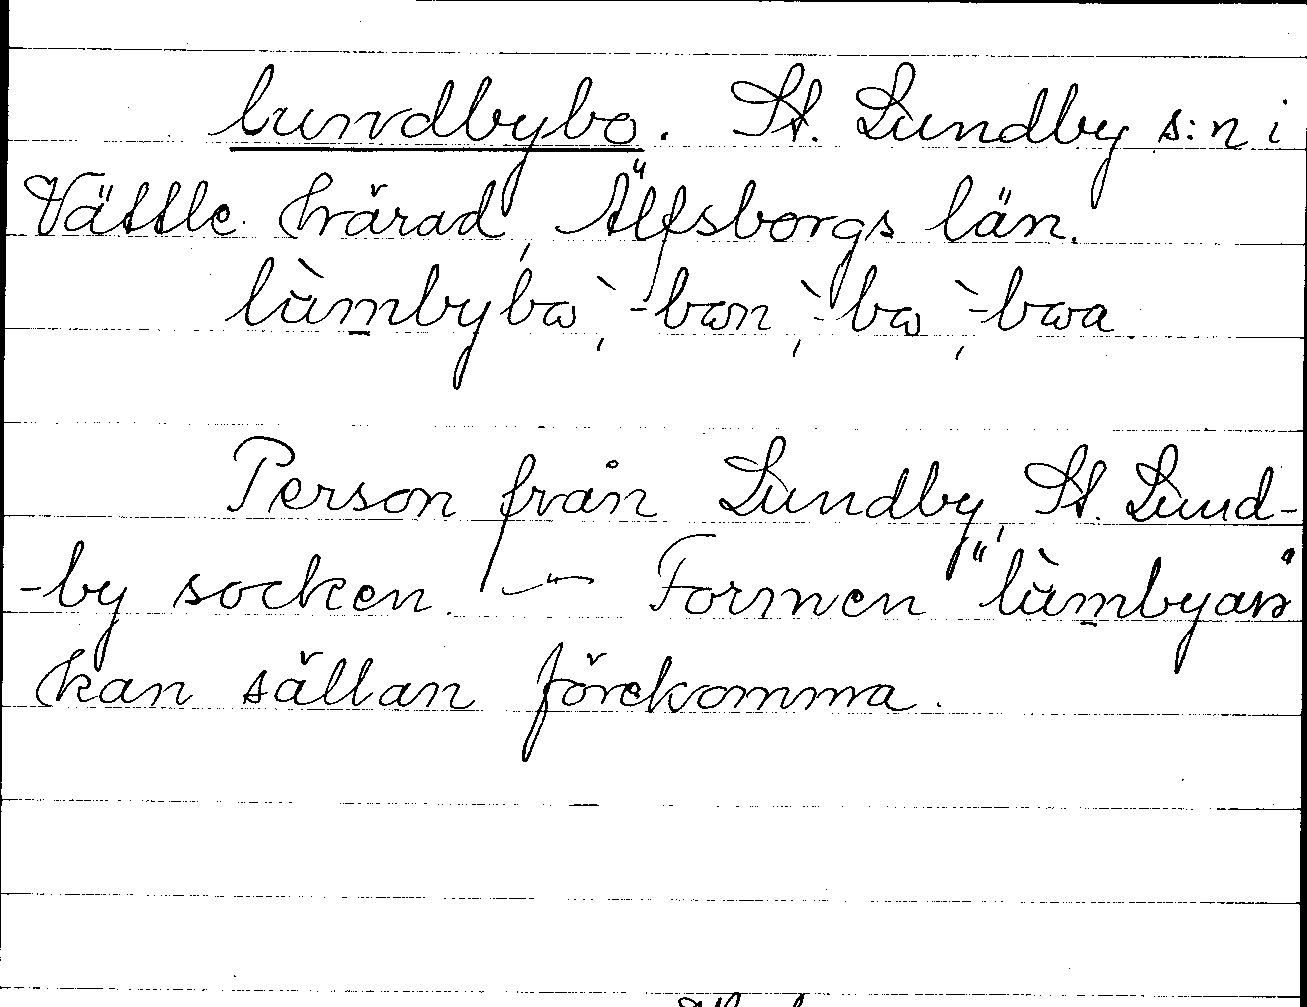 lundbybo. St. Lundby s:n i
Vättle härad, Älfsborgs län.
lùmbybω`, -bωn`, -bω`, -bωa.
Person från Lundby, St. Lund-
-by socken. — Formen "lùmbyan"
kan sällan förekomma.